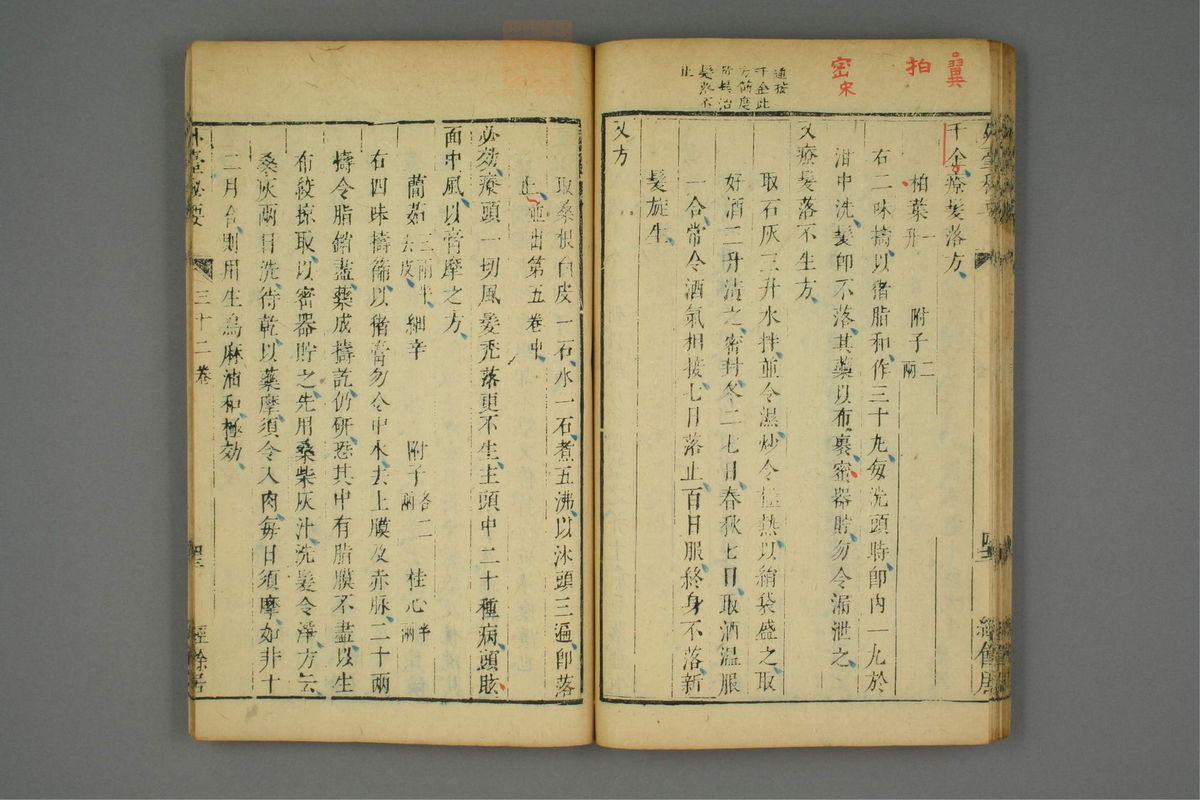 翼
拍
密宋
道按
千金此
方備急
髮落不
止
千金療髮落方
柏葉一升 附子二兩
右二味擣以猪脂和作三十丸每洗頭時即內一丸於
泔中洗髮即不落其藥以布裹密器貯勿令漏泄之
又療髮落不生方
取石灰三升水拌並令濕炒令極熱以絹袋盛之取
好酒三升漬之密封冬二七日春秋七日取酒溫服
一合常令酒氣相接七日落止百日服終身不落新
髮旋生
又方
取桑根白皮一石水一石煮五沸以沐頭三遍即落
止並出第五卷中
必効療頭一切風髮禿落更不生主頭中二十種病頭眩
面中風以膏摩之方
䕡茹三兩半去皮 細辛 附子各二兩 桂心半兩
右四味擣篩以猪膏勿令中水去上膜及赤脉二十兩
擣令脂銷盡藥成擣訖仍研恐其中有脂膜不盡以生
布絞掠取以密器貯之先用桑柴灰汁洗髮令淨方云
桑灰兩日洗待乾以藥摩須令入肉每日須摩如非十
二月合則用生烏麻油和極効
外臺秘要
三十二卷
經餘居